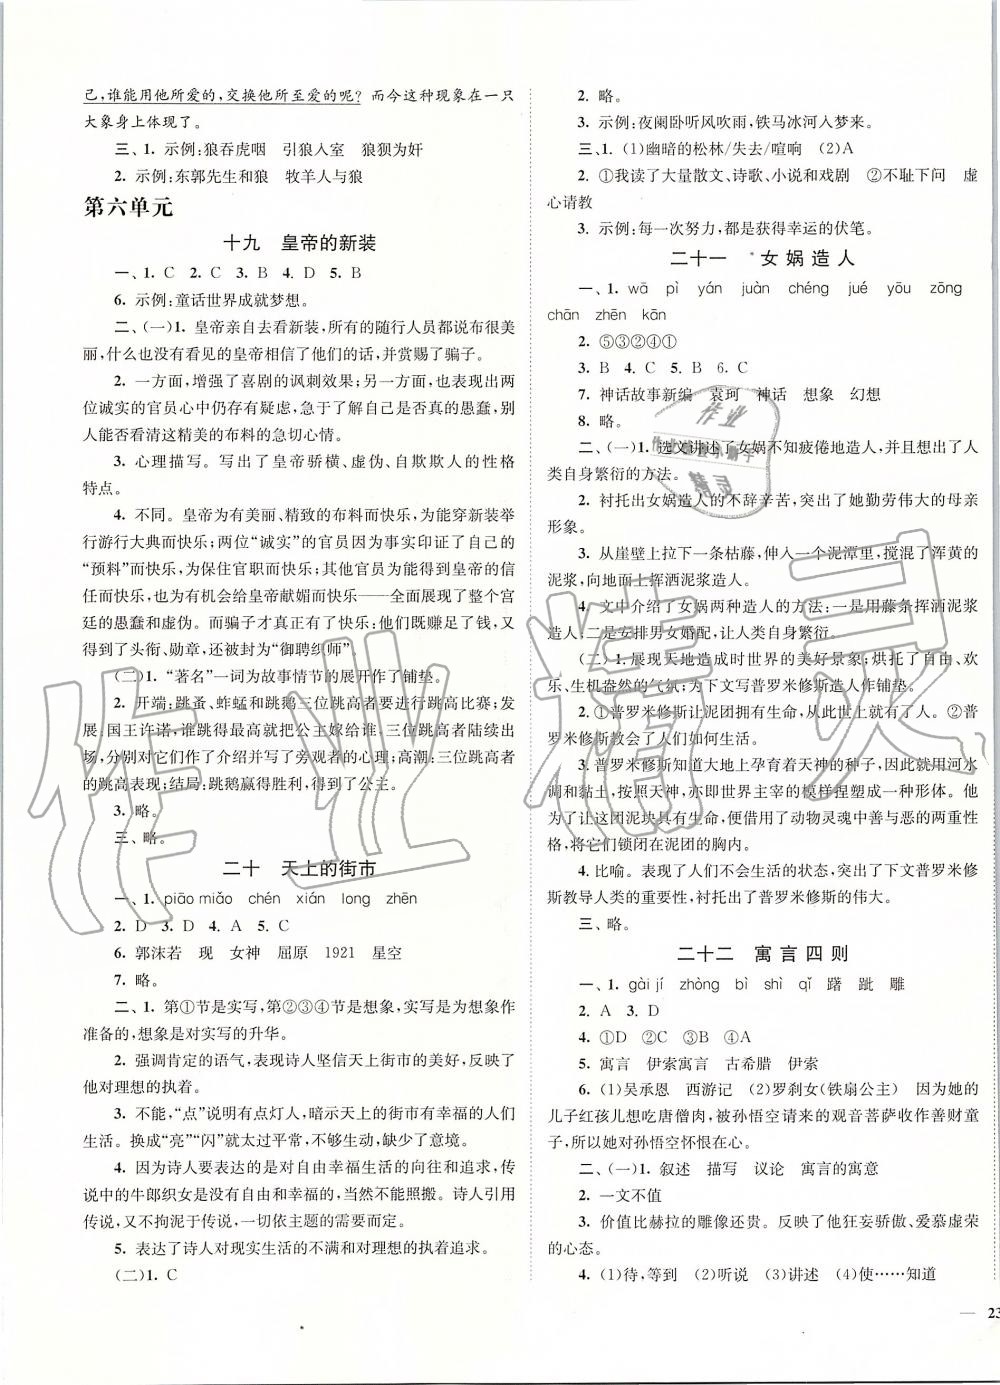 己，谁能用他所爱的，交换他所至爱的呢？而今这种现象在一只
大象身上体现了。
三、1. 示例：狼吞虎咽　引狼入室　狼狈为奸
2. 示例：东郭先生和狼　牧羊人与狼
第六单元
十九　皇帝的新装
一、1. C　2. C　3. B　4. D　5. B
6. 示例：童话世界成就梦想。
二、(一)1. 皇帝亲自去看新装，所有的随行人员都说布很美
丽，什么也没有看见的皇帝相信了他们的话，并赏赐了骗子。
2. 一方面，增强了喜剧的讽刺效果；另一方面，表现出两
位诚实的官员心中仍存有疑虑，急于了解自己是否真的愚蠢，别
人能否看清这精美的布料的急切心情。
3. 心理描写。写出了皇帝骄横、虚伪、自欺欺人的性格
特点。
4. 不同。皇帝有美丽、精致的布料而快乐，为能穿新装
举行游行大典而快乐；两位“诚实”的官员因为事实印证了自己的
“预料”而快乐，为保住官职而快乐；其他官员为能得到同样的快
乐，也为有机会给皇帝献媚而快乐——全面展现了整个宫
廷的愚蠢和虚伪。而骗子才真正有了快乐：他们既赚足了钱，又
得到了头衔、勋章，还被封为“御聘织师”。
(二)1. “著名”一词为故事情节的展开作了铺垫。
2. 开端：跳蚤、蚱蜢和跳鹅三位跳高者要进行跳高比赛；发
展：国王许诺，谁跳得最高就把公主嫁给谁，三位跳高者陆续出
场，分别对它们作了介绍并写了旁观者的心理；高潮：三位跳高者
的跳高表现；结局：跳鹅赢得胜利，得到了公主。
3. 略。
三、略。
二十　天上的街市
一、1. piāo miǎo　chén　xián　long　zhēn
2. D　3. D　4. A　5. C
6. 郭沫若　现　女神　屈原　1921　星空
7. 略。
二、1. 第①节是实写，第②③④节是想象，实写是为想象作
准备的，想象是对实写的升华。
2. 强调肯定的语气，表现诗人坚信天上街市的美好，反映了
他对理想的执着。
3. 不能，“点”说明有点灯人，暗示天上的街市有幸福的人们
生活。换成“亮”“闪”就太过平常，不够生动，缺少了意境。
4. 因为诗人要表达的是对自由幸福生活的向往和追求，传
说中的牛郎织女是没有自由和幸福的，当然不能照搬。诗人引用
传说，又不拘泥于传说，一切依主题的需要而定。
5. 表达了诗人对现实生活的不满和对理想的执着追求。
(二)1. C
2. 略。
3. 示例：夜阑卧听风吹雨，铁马冰河入梦来。
三、1. (1)幽暗的松林/失去/喧响　(2)A
2. ①我读了大量散文、诗歌、小说和戏剧　②不耻下问　虚
心请教
3. 示例：每一次努力，都是获得幸运的伏笔。
二十一　*女娲造人
一、1. wā　pì　yán　juàn　chéng　jué　yōu　zōng
chān　zhēn　kān
2. ⑤③②④①
3. B　4. C　5. B　6. C
7. 神话故事新编　袁珂　神话　想象　幻想
8. 略。
二、(一)1. 选文讲述了女娲不知疲倦地造人，并创造出了人
类自身繁衍的方法。
2. 衬托出女娲造人的不辞辛苦，突出了她勤劳伟大的母亲
形象。
3. 从崖壁上拉下一条枯藤，伸入一个泥潭里，搅混了浑黄的
泥浆，向地面上挥洒泥浆造人。
4. 文中介绍了女娲两种造人的方法：一是用藤条挥洒泥浆
造人；二是安排男女婚配，让人类自身繁衍。
(二)1. 展现天地造成时世界的美好景象；烘托了自由、欢
乐、生机盎然的气氛；为下文写普罗米修斯造人作铺垫。
2. ①普罗米修斯让泥团有生命，从此世上就有了人。②普
罗米修斯教会了人们如何生活。
3. 普罗米修斯知道大地上孕育着天神的种子，因此就用河水
调和黏土，按照天神，亦即世界主宰的模样捏塑成一种形体。他
为了让这团泥块具有生命，便借用了动物灵魂中善与恶的两重性
格，将它们锁闭在泥团的胸内。
4. 比喻。表现出了人们不会生活的状态，突出了下文普罗米修
斯教导人类的重要性，衬托出了普罗米修斯的伟大。
三、略。
二十二　寓言四则
一、1. gài jí　zhòng　bì　shì　qǐ　躇　趾　雕
2. A　3. D
4. ①D　②C　③B　④A
5. 寓言　伊索寓言　古希腊　伊索
6. (1)吴承恩　西游记　(2)罗刹女(铁扇公主)　因为她的
儿子红孩儿想吃唐僧肉，被孙悟空请来的观音菩萨收作善财童
子，所以她对孙悟空怀恨在心。
二、(一)1. 叙述　描写　议论　寓言的寓意
2. 一文不值
3. 价值比赫拉的雕像还贵。反映了他狂妄骄傲、爱慕虚荣
的心态。
4. (1)待，等到　(2)听说　(3)讲述　(4)使……知道
— 23
作业精灵